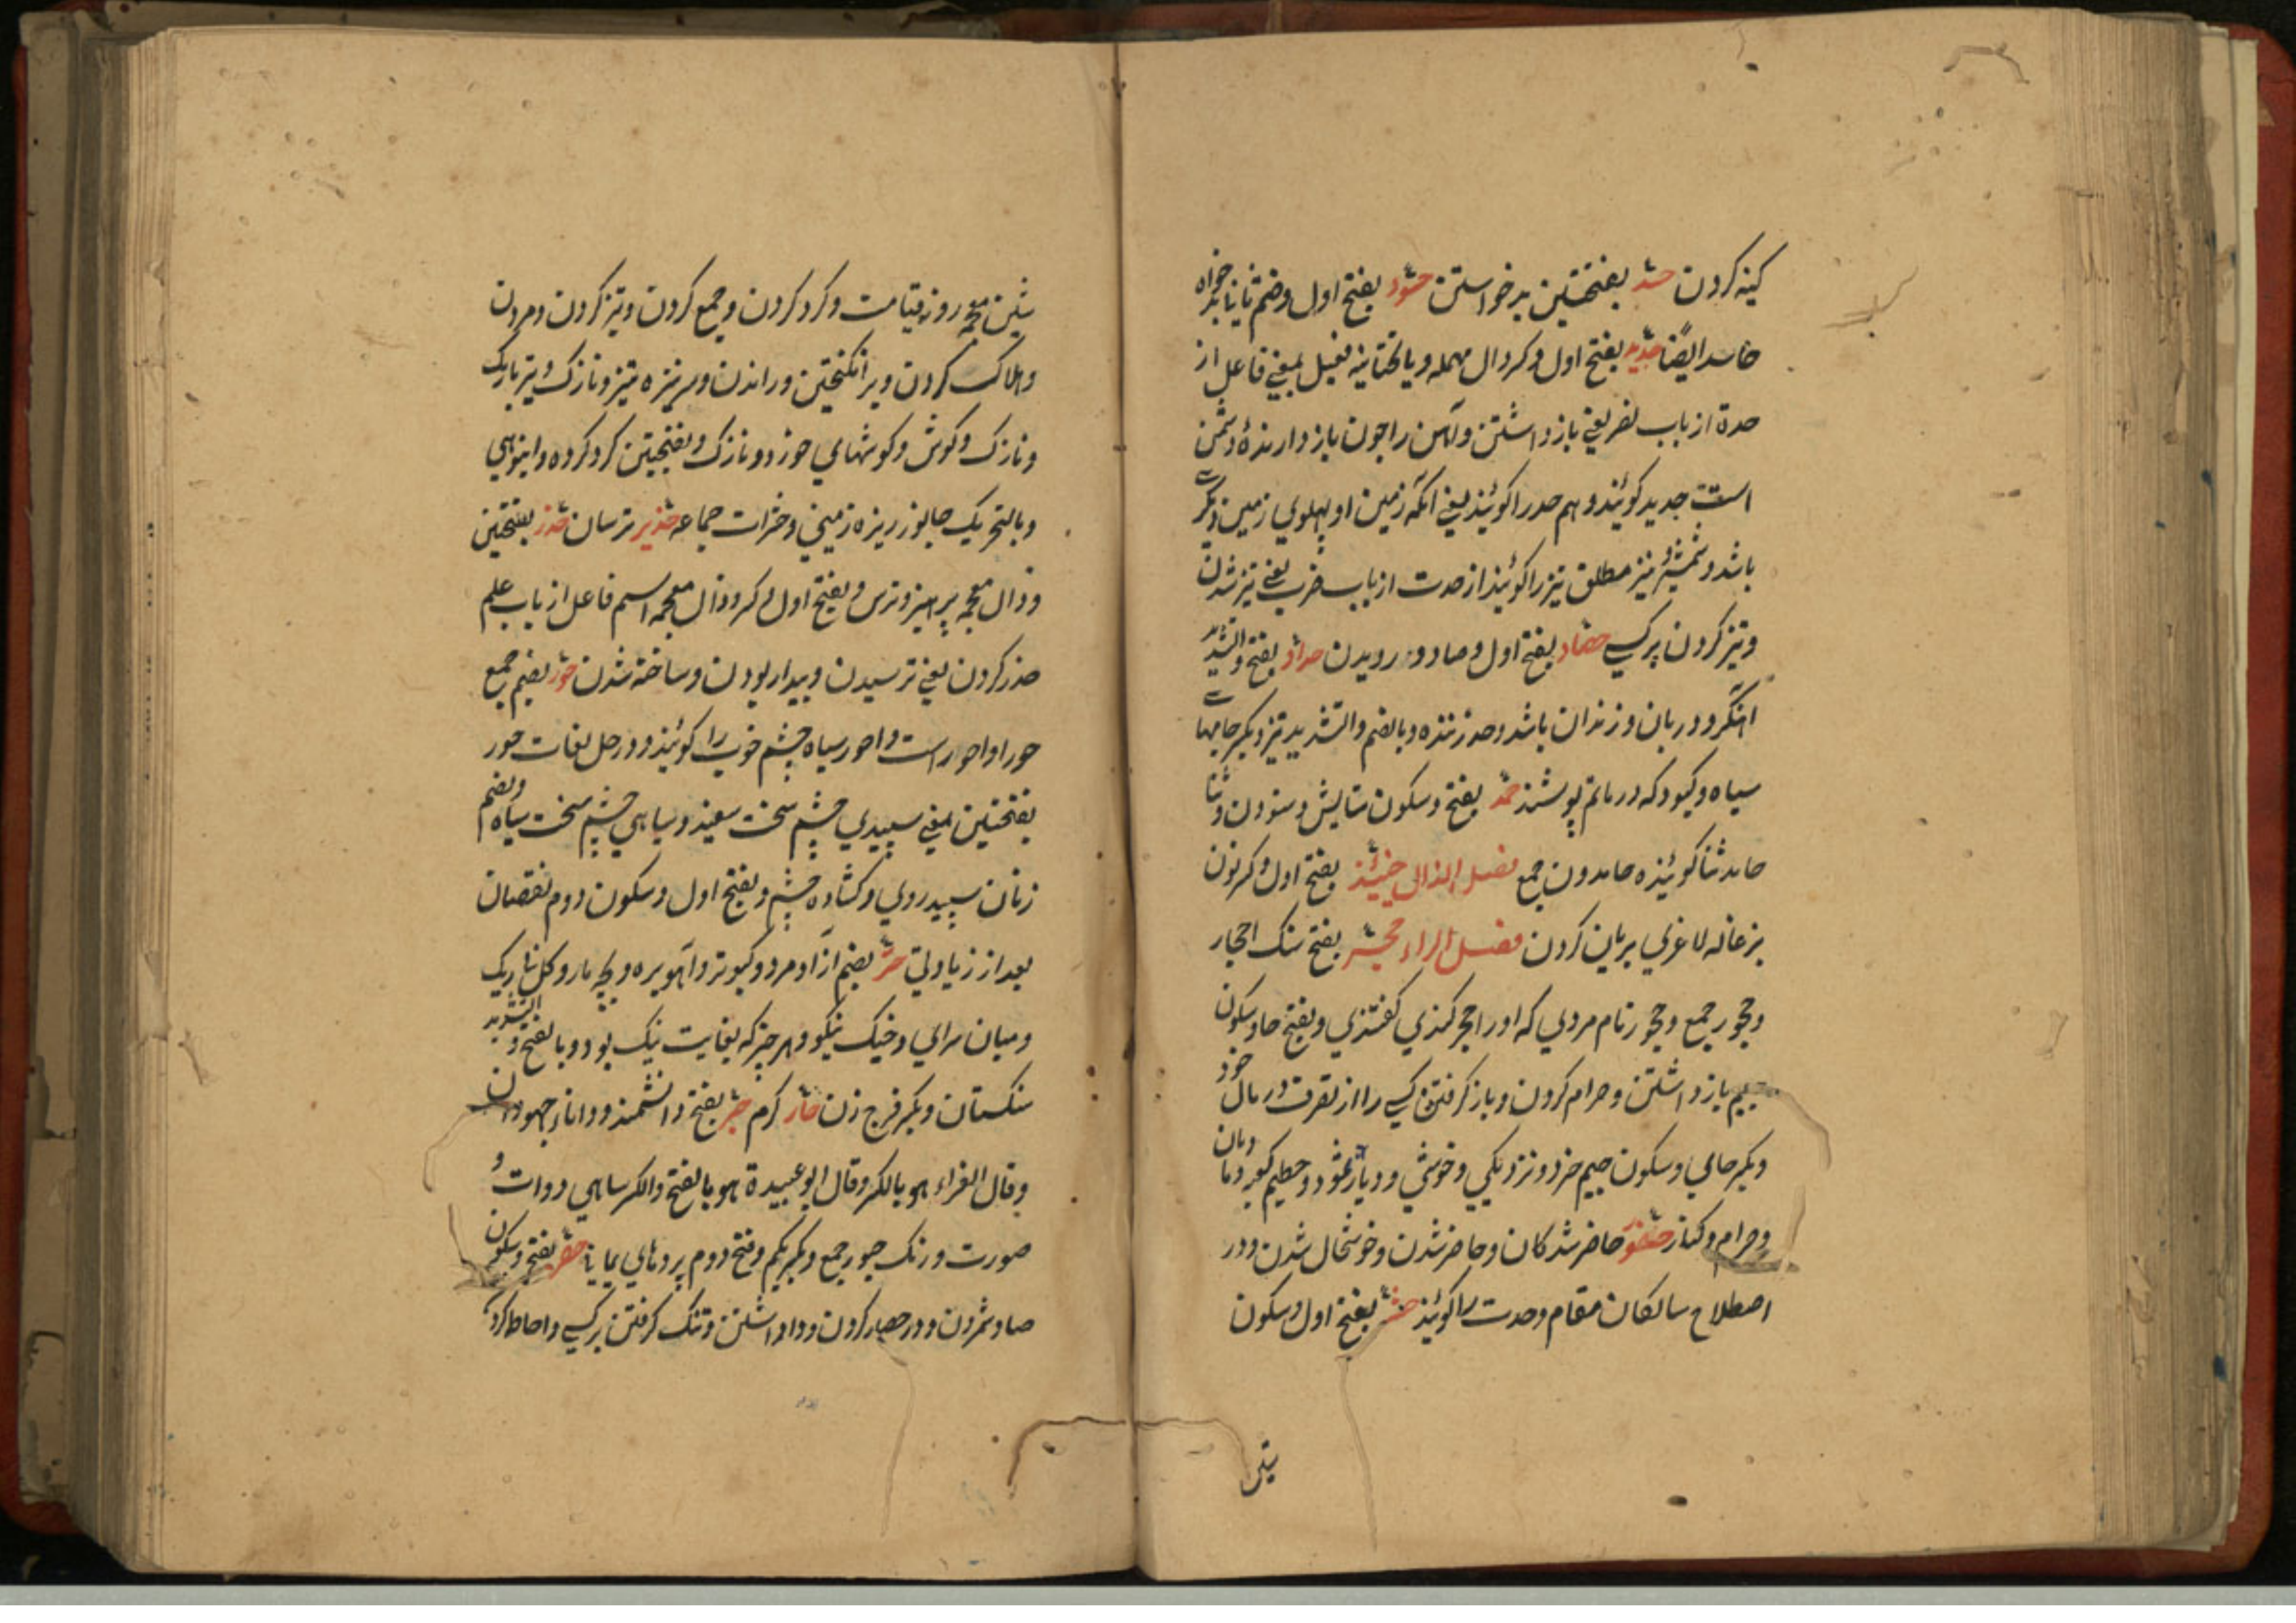 کینه کردن حسد بفتحتین بدخواستن حسود بفتح اول وضم ثانیا بدخواه
حاسد ایضًا حدید بفتح اول وکسر دال مهمله ویا تحتانیه فعیل بمعنی فاعل از
حدة از باب نصر یعنی باز داشتن وآهن را چون باز دارندهٔ دشمن
است حدید کویند وهم حد را کویند یعنی انکه زمین او پهلوی زمین دیگرے
باشد وشمشیر تیز ومطلق تیز را کویند از حدت از باب ضرب یعنی تیز شدن
وتیز کردن بر کسی حصاد بفتح اول وصاد درویدن حداد بفتح والتشدید
اهنگر ودربان وزندان باشد وحد زننده وبالضم والتشدید تیز وبکسر جامهاے
سیاه وکبود که در ماتم پوشند حمد بفتح وسکون ستایش وستودن وثنا
حامد ثنا کوینده حامدون جمع فصل الذال حنیذ بفتح اول وکسر نون
بزغاله لاغری بریان کردن فصل الراء حجر بفتح سنک احجار
وحجور جمع وحجور نام مردی که اورا حجر کندی کفتندی وبفتح حا وسکون
جیم باز داشتن وحرام کردن وباز کرفتن کسی را از تصرف در مال خود
وبکسر حای وسکون جیم خرد ونزدیکی وخویشی ودیار ثمود وحطیم کعبه ومادیان
وحرام وکنار حضور حاضر شدکان وحاضر شدن وخوشحال شدن ودر
اصطلاح سالکان مقام وحدت را کویند حشر بفتح اول وسکون
شین
شین معجمه روز قیامت وکرد کردن وجمع کردن وتیز کردن ومردن
وهلاک کردن وبرانکیختن وراندن وسر نیزه تیز ونازک وتیر باریک
ونازک وکوش وکوشهای خورد ونازک وبفتحتین کرد کرده وانبوهی
وبالتحریک جانور ریزه زمینی وحشرات جماعه حذیر ترسان حذر بفتحتین
وذال معجمه پرهیز وترس وبفتح اول وکسر وذال معجمه اسم فاعل از باب علم
حذر کردن یعنی ترسیدن وبیدار بودن وساخته شدن حور بضم جمع
حورا واحور است واحور سیاه چشم خوب را کویند ودر حل لغات حور
بفتحتین بمعنی سپیدی چشم سخت سفید وسیاهی چشم سخت سیاه وبضم
زنان سپید روی وکشاده چشم وبفتح اول وسکون دوم نقصان
بعد از زیادتی حر بضم ازاد مرد وکبوتر وآهو بره وبچه مار وکل تاریک
ومیان سرای وخیک نیکو وهر چیز که بغایت نیک بود وبالفتح والتشدید
سنکستان وبکسر فرج زن حار کرم حبر بفتح دانشمند ودانا جهودان
وقال الفراء هو بالکسر وقال ابو عبیدة هو بالفتح والکسر سیاهی دوات و
صورت ورنک حبور جمع وبکسر یکم وفتح دوم بردهای یمانی حصر بفتح وسکون
صاد شمردن ودر حصار کردن ووا داشتن وتنک کرفتن بر کسی واحاطه کردن